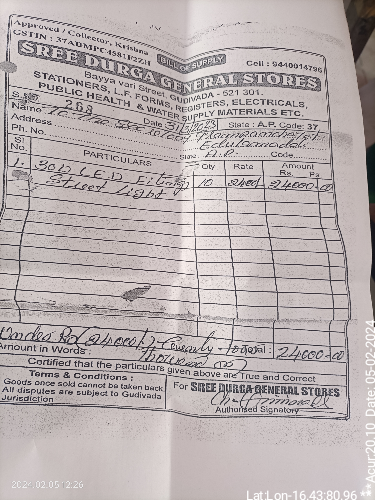 Approved / Collector, Krishna
GSTIN : 37ADMPC4581F2ZH
BILL OF SUPPLY
Cell : 9440014796
SREE DURGA GENERAL STORES
Bayya vari Street, GUDIVADA - 521 301.
STATIONERS, L.F. FORMS, REGISTERS, ELECTRICALS,
PUBLIC HEALTH & WATER SUPPLY MATERIALS ETC.
268
State : A.P. Code: 37
Name
Address
Ph. No.
State: A.P. Code
Sl No. PARTICULARS Qty Rate Amount Rs. Ps.
1. 30W L.E.D Fitting 10 2400 24000-00
Street Light
Total : 24000-00
Amount in Words :
Certified that the particulars given above are True and Correct
Terms & Conditions :
Goods once sold cannot be taken back
All disputes are subject to Gudivada
Jurisdiction
For SREE DURGA GENERAL STORES
Authorised Signatory
2024.02.05 12:26
Lat Lon-16.43:80.96